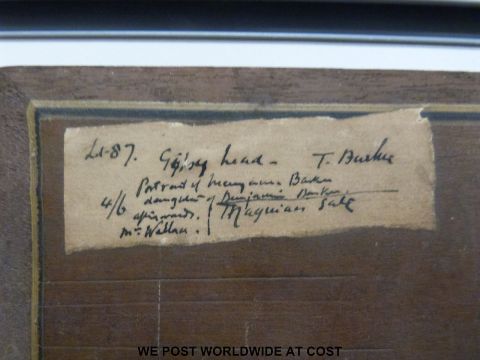 Lot-87. Gipsy head - T. Barker
Portrait of Barker
4/6 daughter of Benjamin Barker.
afterwards. Sale
Mrs Wallace.
WE POST WORLDWIDE AT COST